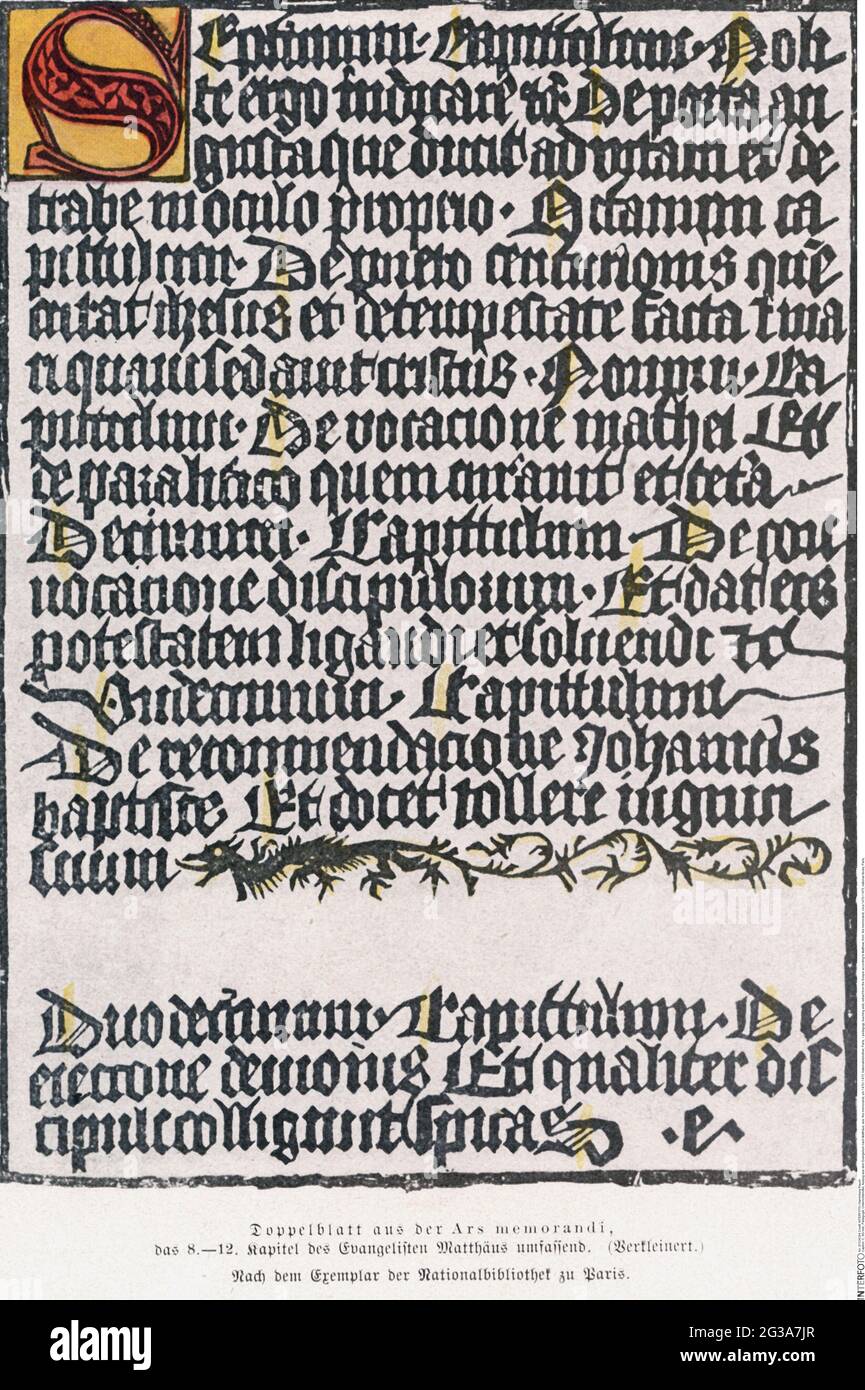 Septimum · Capittulum · Noli
te ergo iudicare etc̄ De porta an
gusta que ducit ad vitam et de
trabe in oculo proprio · Octauum ca
pittulum · De puero centurionis quē
curat ihesus et de tempestate facta i ma
ri quam sedauit cristus · Nonum · Ca
pittulum · De vocacione mathei Et
de paralitico quem curauit et cetā
Decimum · Capittulum · De con
uocacione discipulorum · Et dat eis
potestatem ligandi et soluendi etc
Undecimum · Capittulum
De recommendacione Johannis
baptiste Et docet tollere iugum
suum
Duodecimum · Capittulum · De
eiectione demonis Et qualiter dis
cipuli colligunt spicas · e ·
Doppelblatt aus der Ars memorandi,
das 8.—12. Kapitel des Evangelisten Matthäus umfassend. (Verkleinert.)
Nach dem Exemplar der Nationalbibliothek zu Paris.
INTERFOTO
alamy
Image ID: 2G3A7JR
www.alamy.com